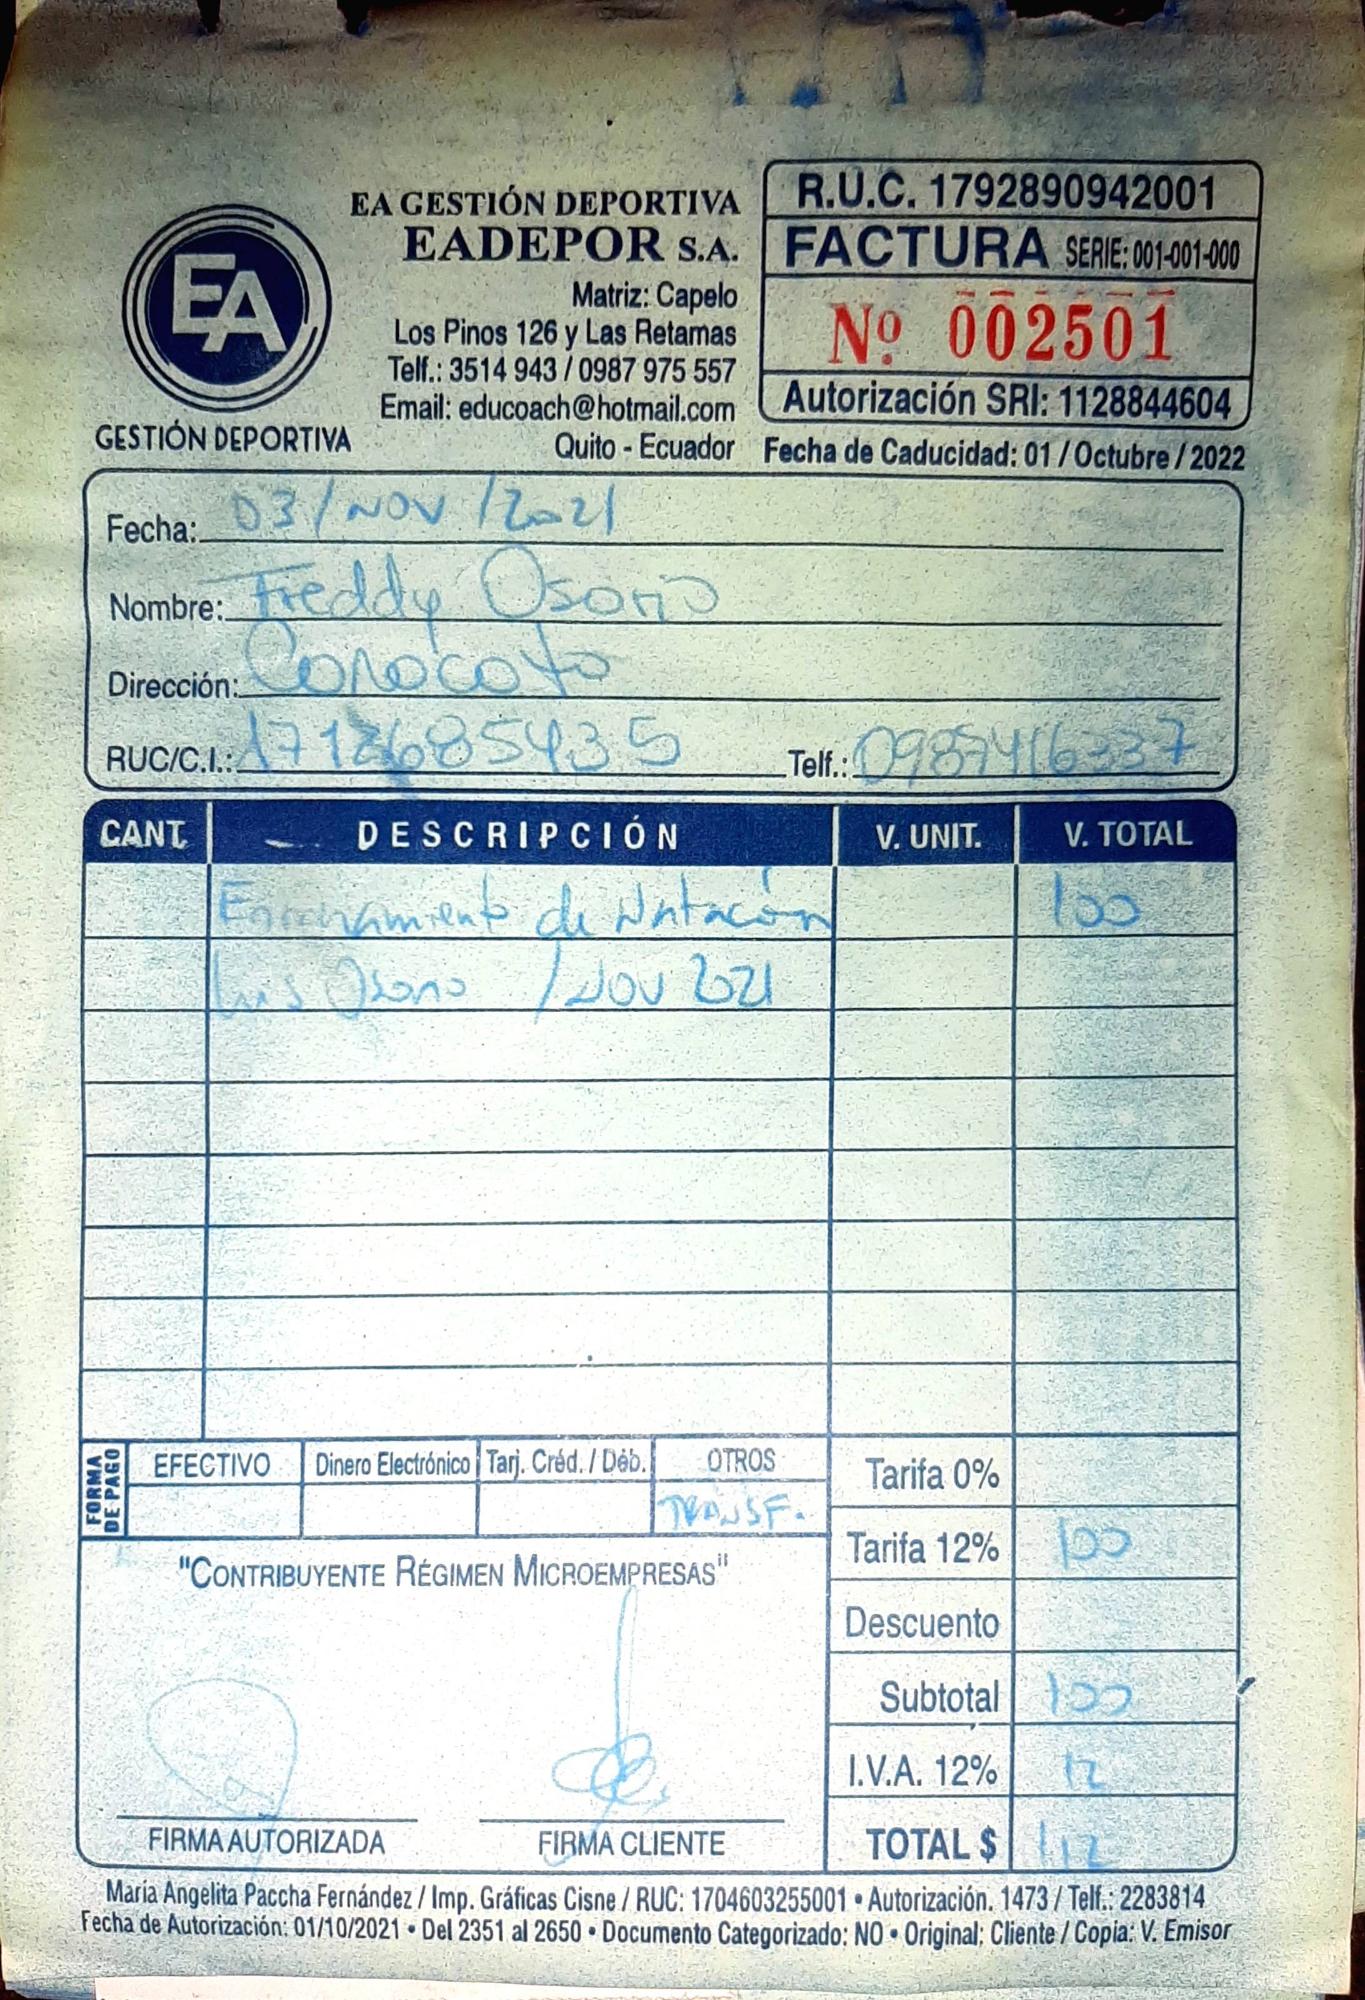 EA GESTIÓN DEPORTIVA
EADEPOR S.A.
Matriz: Capelo
Los Pinos 126 y Las Retamas
Telf.: 3514 943 / 0987 975 557
Email: educoach@hotmail.com
Quito - Ecuador
EA
GESTIÓN DEPORTIVA
R.U.C. 1792890942001
FACTURA SERIE: 001-001-000
Nº 002501
Autorización SRI: 1128844604
Fecha de Caducidad: 01 / Octubre / 2022
Fecha: 03/NOV/2021
Nombre: Freddy Osorio
Dirección: Conocoto
RUC/C.I.: Telf.:
CANT. DESCRIPCIÓN V. UNIT. V. TOTAL
Entrenamiento de Natación 100
Luis Osorio / NOV 2021
FORMA DE PAGO
EFECTIVO Dinero Electrónico Tarj. Créd. / Déb. OTROS
TRANSF.
Tarifa 0%
Tarifa 12% 100
Descuento
Subtotal 100
I.V.A. 12% 12
TOTAL $ 112
"CONTRIBUYENTE RÉGIMEN MICROEMPRESAS"
FIRMA AUTORIZADA FIRMA CLIENTE
María Angelita Paccha Fernández / Imp. Gráficas Cisne / RUC: 1704603255001 • Autorización. 1473 / Telf.: 2283814
Fecha de Autorización: 01/10/2021 • Del 2351 al 2650 • Documento Categorizado: NO • Original: Cliente / Copia: V. Emisor